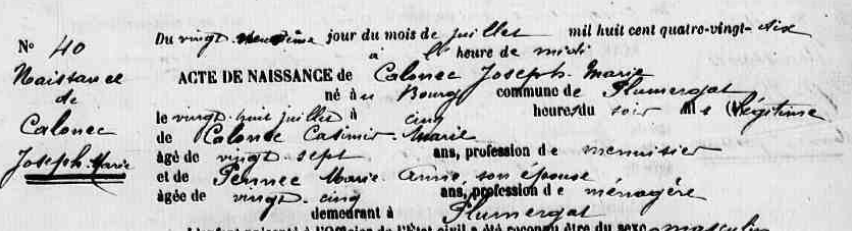 N° 40
Naissance
de
Calonec
Joseph Marie
Du vingt neuvième jour du mois de juillet mil huit cent quatre-vingt-dix
à l' heure de midi
ACTE DE NAISSANCE de Calonec Joseph Marie
né au Bourg commune de Plumergat
le vingt huit juillet à cinq heures du soir fils légitime
de Calonec Casimir Marie
âgé de vingt sept ans, profession de menuisier
et de Pennec Marie Anne, son épouse
âgée de vingt cinq ans, profession de ménagère
demeurant à Plumergat
l'enfant présenté à l'Officier de l'Etat civil a été reconnu être du sexe masculin